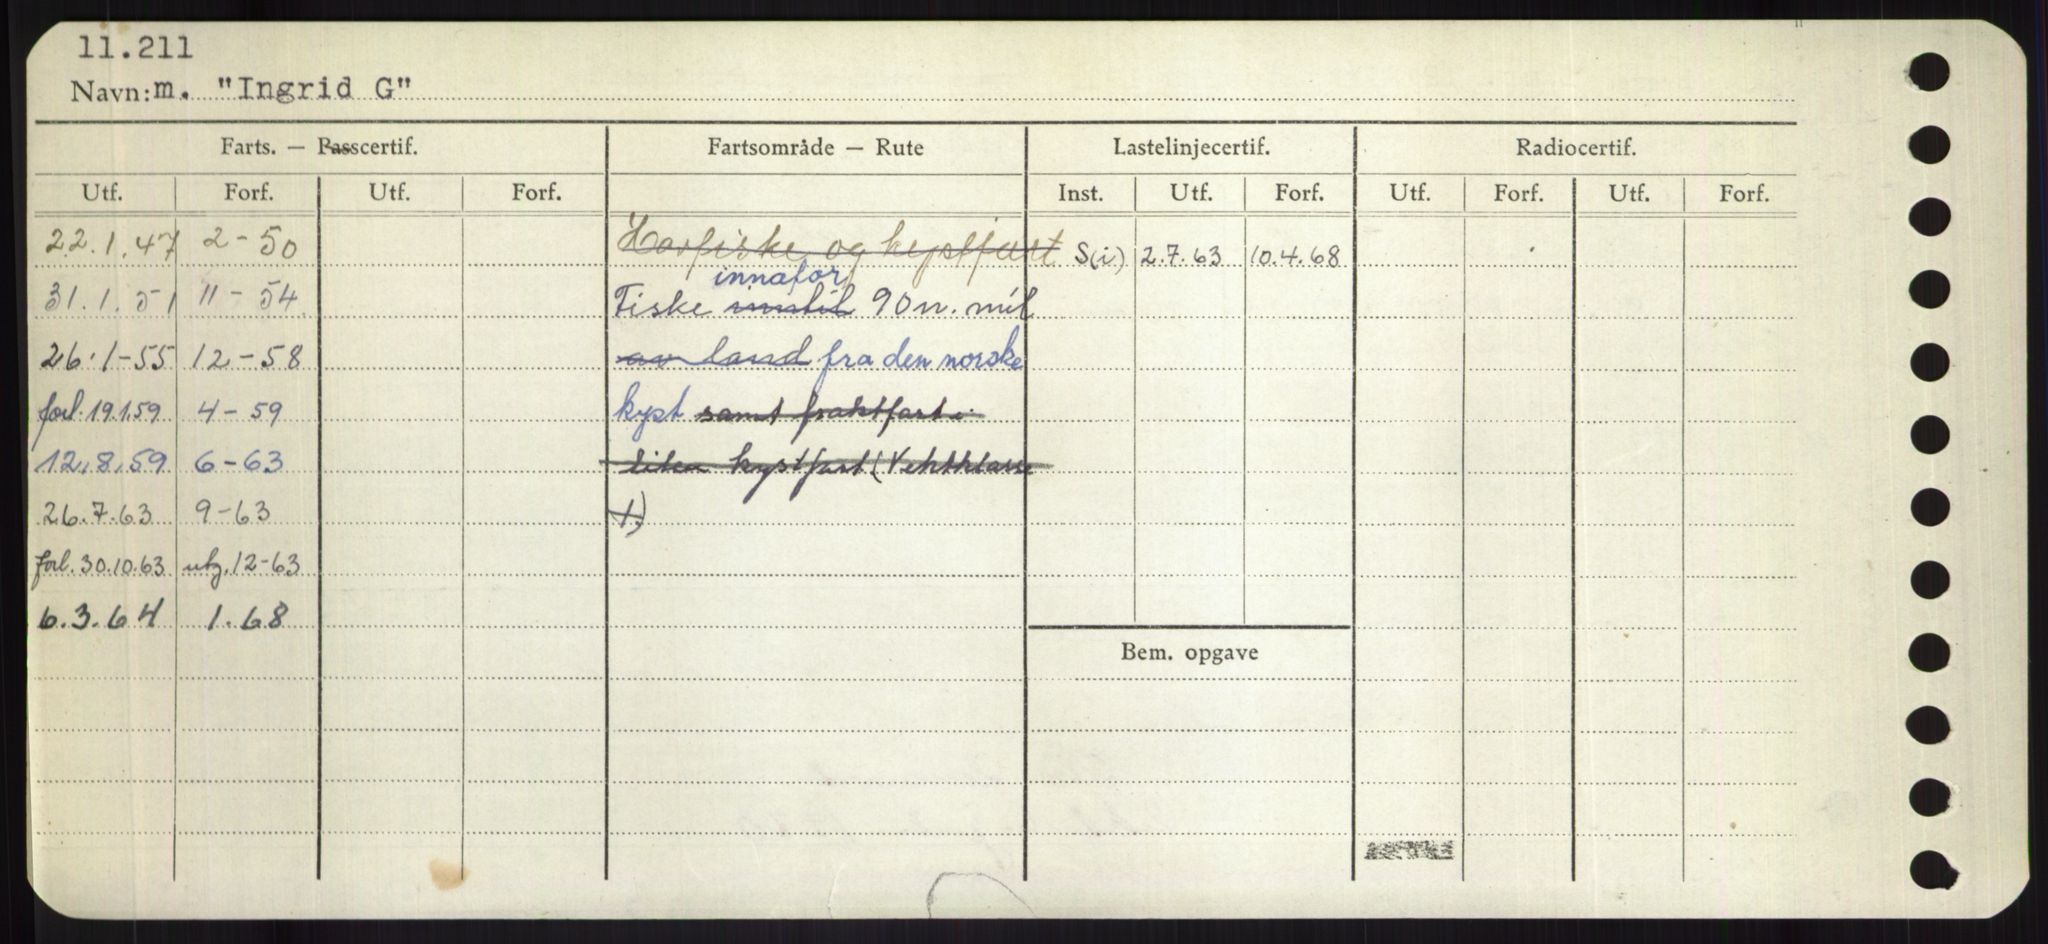 11.211
Navn: m. "Ingrid G"
Farts. — Passcertif. Fartsområde — Rute Lastelinjecertif. Radiocertif.
Utf. Forf. Utf. Forf. Inst. Utf. Forf. Utf. Forf. Utf. Forf.
22.1.47 2-50 Havfiske og kystfart S(i) 2.7.63 10.4.68
innafor
31.1.51 11-54. Fiske inntil 90 n. mil
26.1-55 12-58 av land fra den norske
forl. 19.1.59 4-59 kyst samt fraktfart i
12.8.59 6-63 liten kystfart (Vektklasse
26.7.63 9-63 1.)
forl. 30.10.63 utg. 12-63
6.3.64 1.68
Bem. opgave